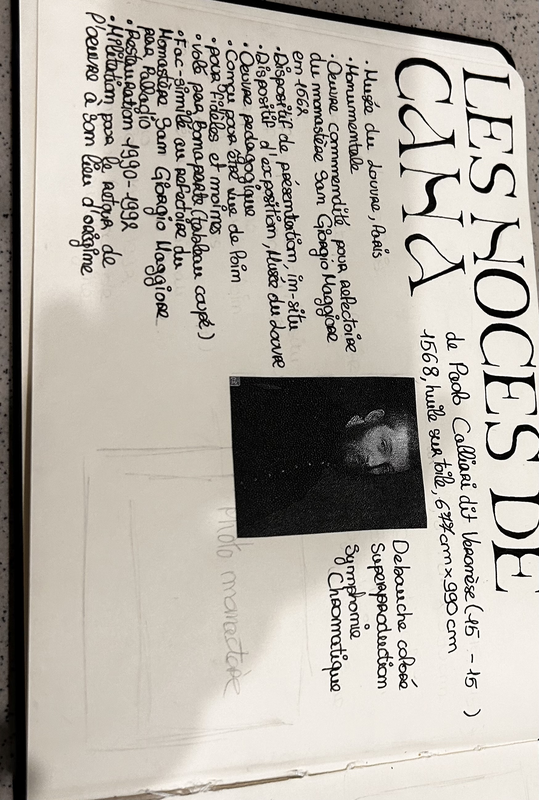 LES NOCES DE
CANA
de Paolo Calliari dit Veronèse (15 - 15 )
1568, huile sur toile, 677cm x 990 cm
• Musée du Louvre, Paris
• Monumentale
• Oeuvre commendité pour refectoire
du monastère San Giorgio Maggiore
en 1562
• Dispositif de présentation, in-situ
• Dispositif d'exposition, Musée du Louvre
• Oeuvre pédagogique
• Conçu pour être vue de loin
• pour fidèles et moines
• Volé par Bonaparte (tableau coupé)
• Fac-similé au refectoire du
Monastère San Giorgio Maggiore
par Palladio
• Restauration 1990-1992
• Militation pour le retour de
l'oeuvre à son lieu d'origine
Debauche coloré
Superproduction
Symphonie
Chromatique
Photo monastère